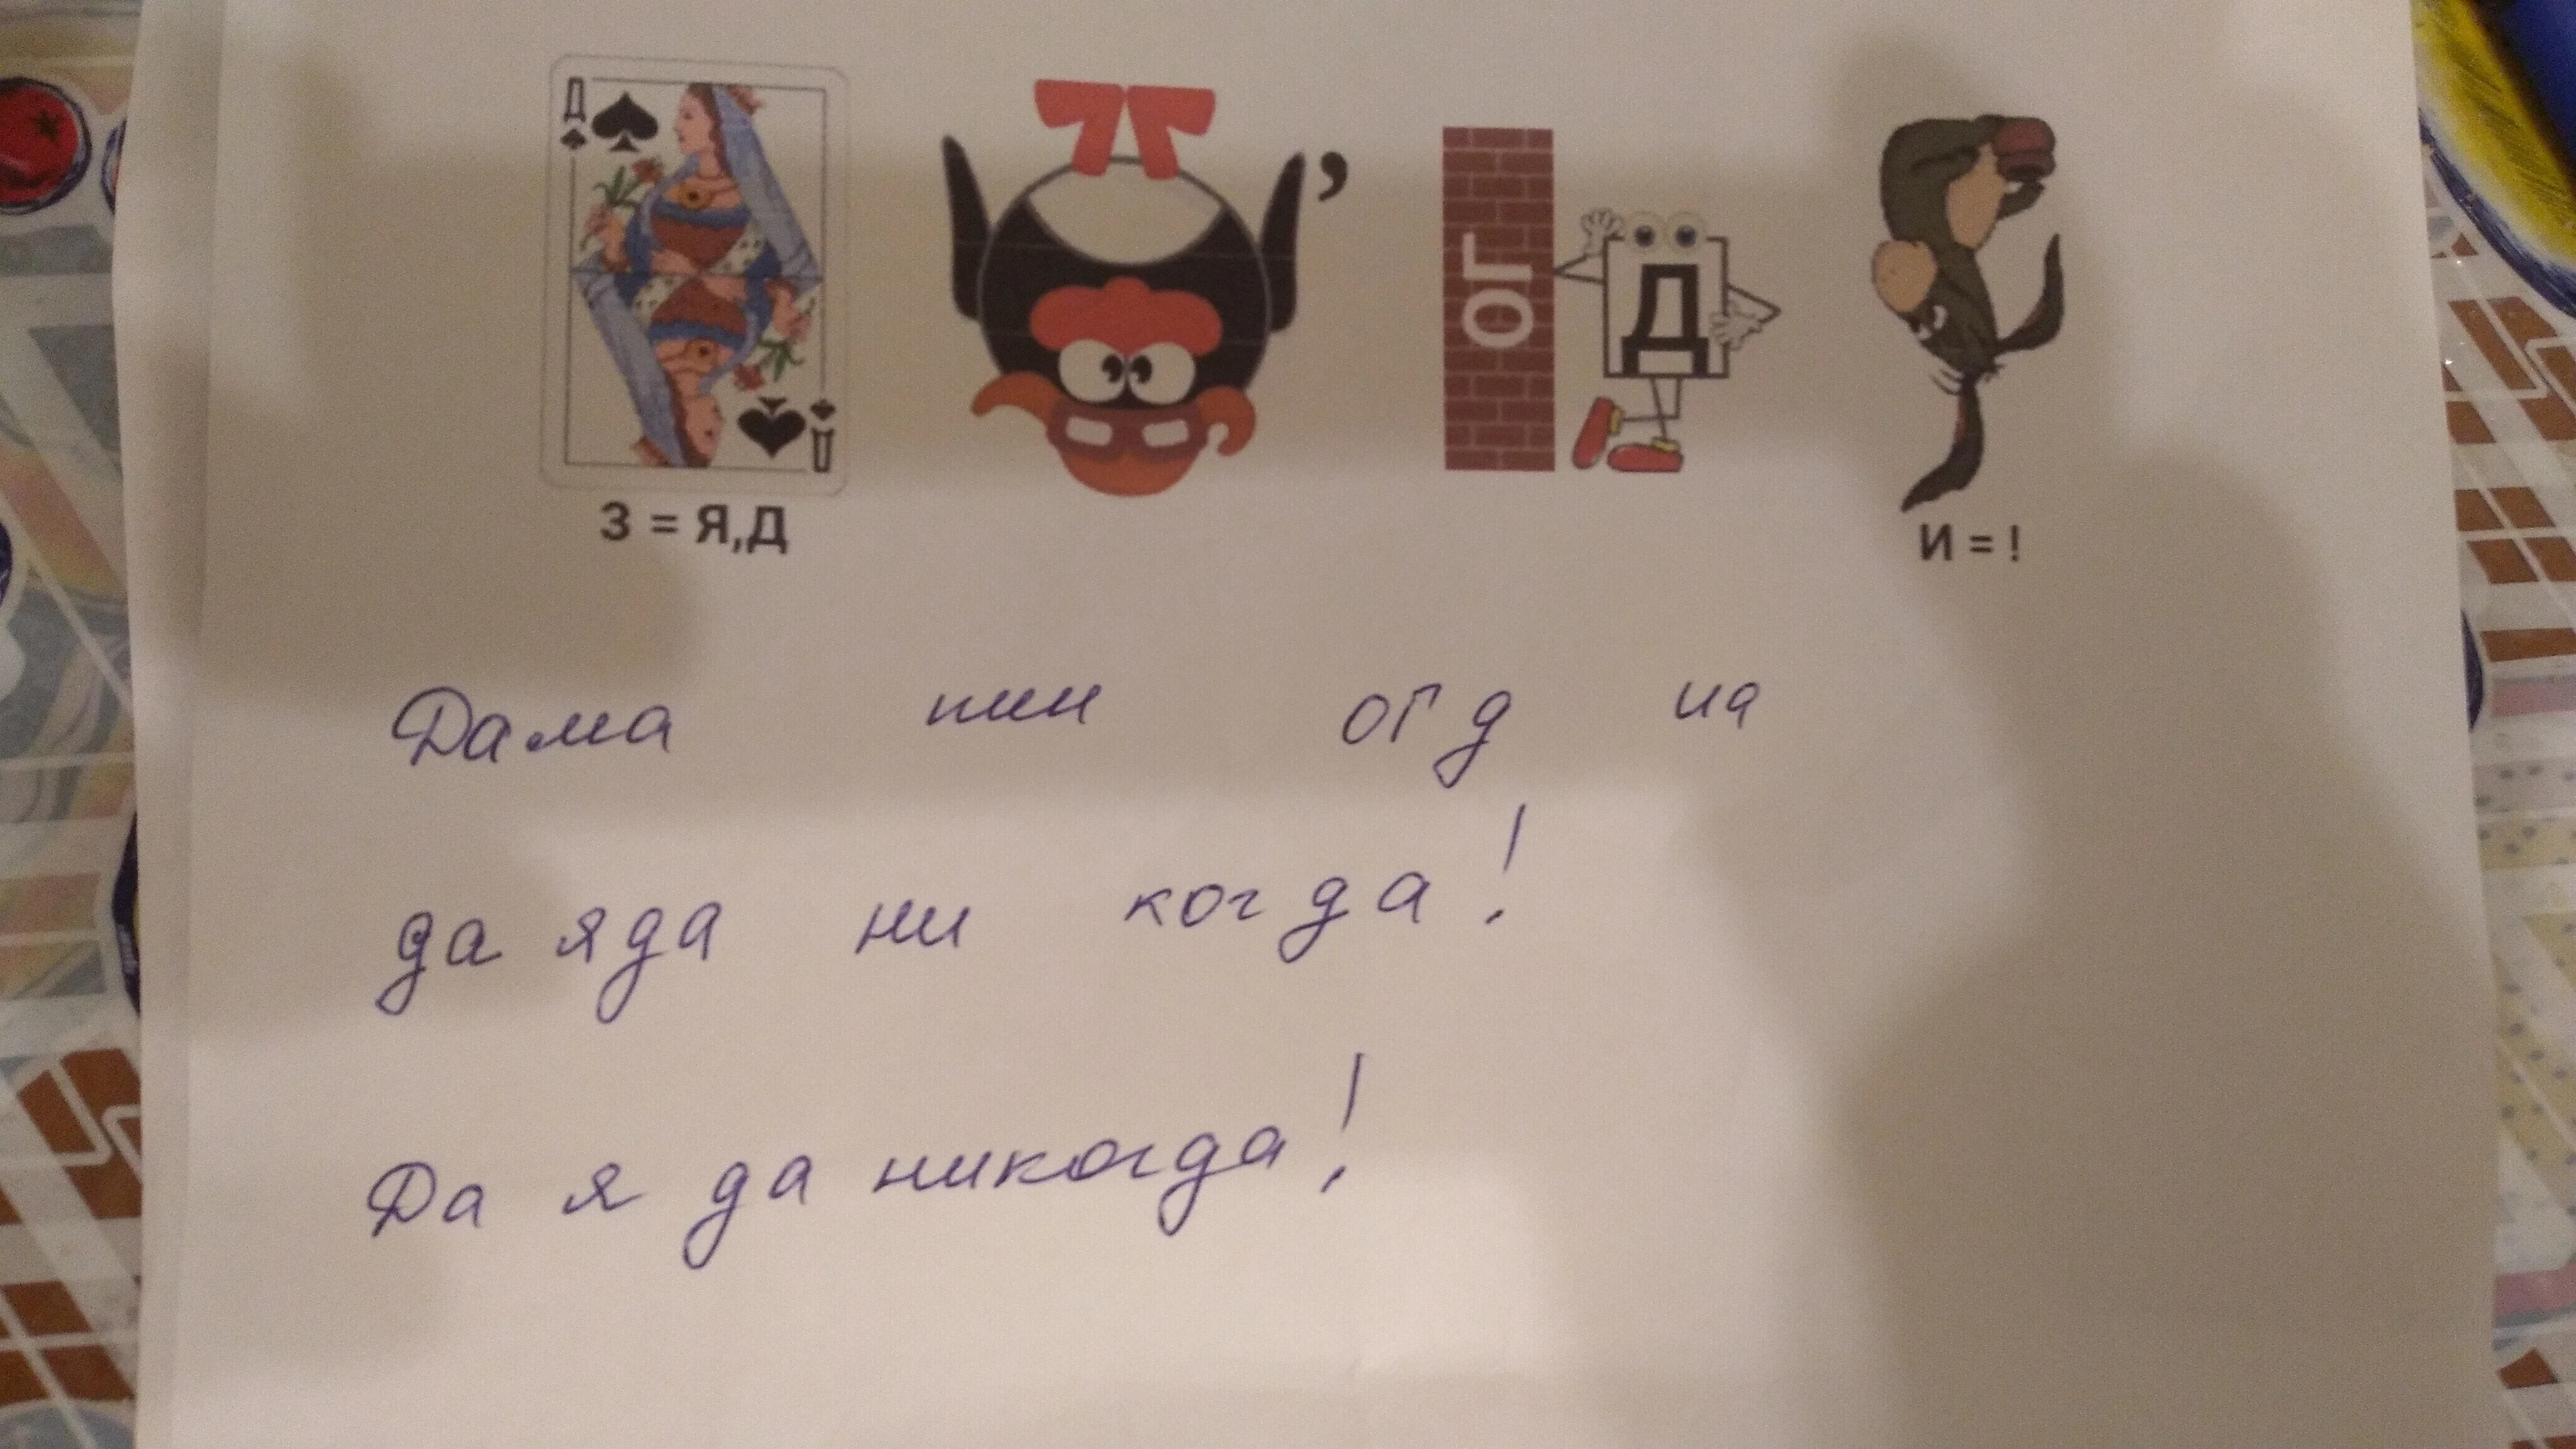 Д
,
ОГ Д
Д
З = Я,Д
И = !
Дама пин огд иа
да яда ни когда!
Да я да никогда!